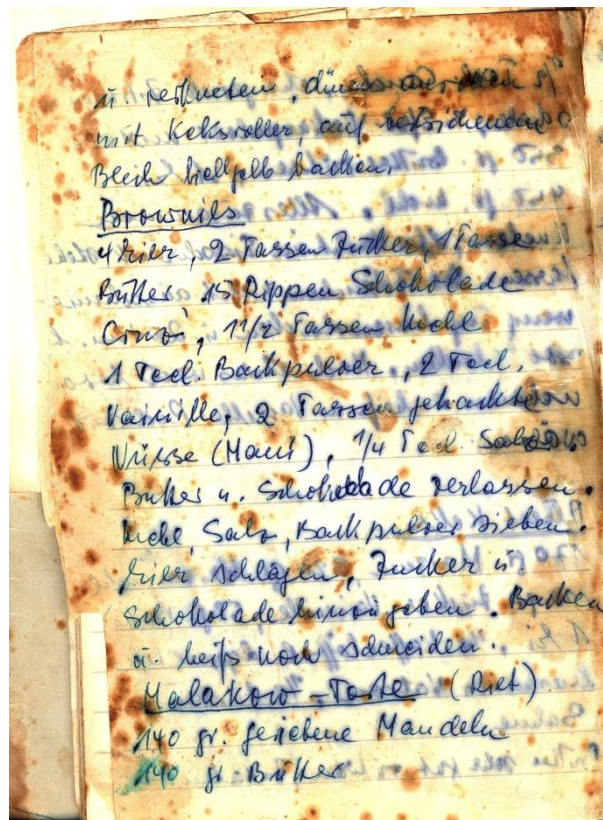 u. verkneten, dünn ausrollen
mit Keksroller, auf bestrichenem
Blech hellgelb backen.
Brownies
4 Eier, 2 Tassen Zucker, 1 Tasse
Butter 15 Rippen Schokolade
1 1/2 Tassen Mehl
1 Teel. Backpulver, 2 Teel.
Vainille, 2 Tassen gehackten
Nüsse (Mani), 1/4 Teel. Salz
Butter u. Schokolade zerlassen.
Mehl, Salz, Backpulver sieben.
Eier schlagen, Zucker u.
Schokolade hinzugeben. Backen
u. heiß noch schneiden.
Malakow-Torte
140 gr. geriebene Mandeln
140 gr Butter